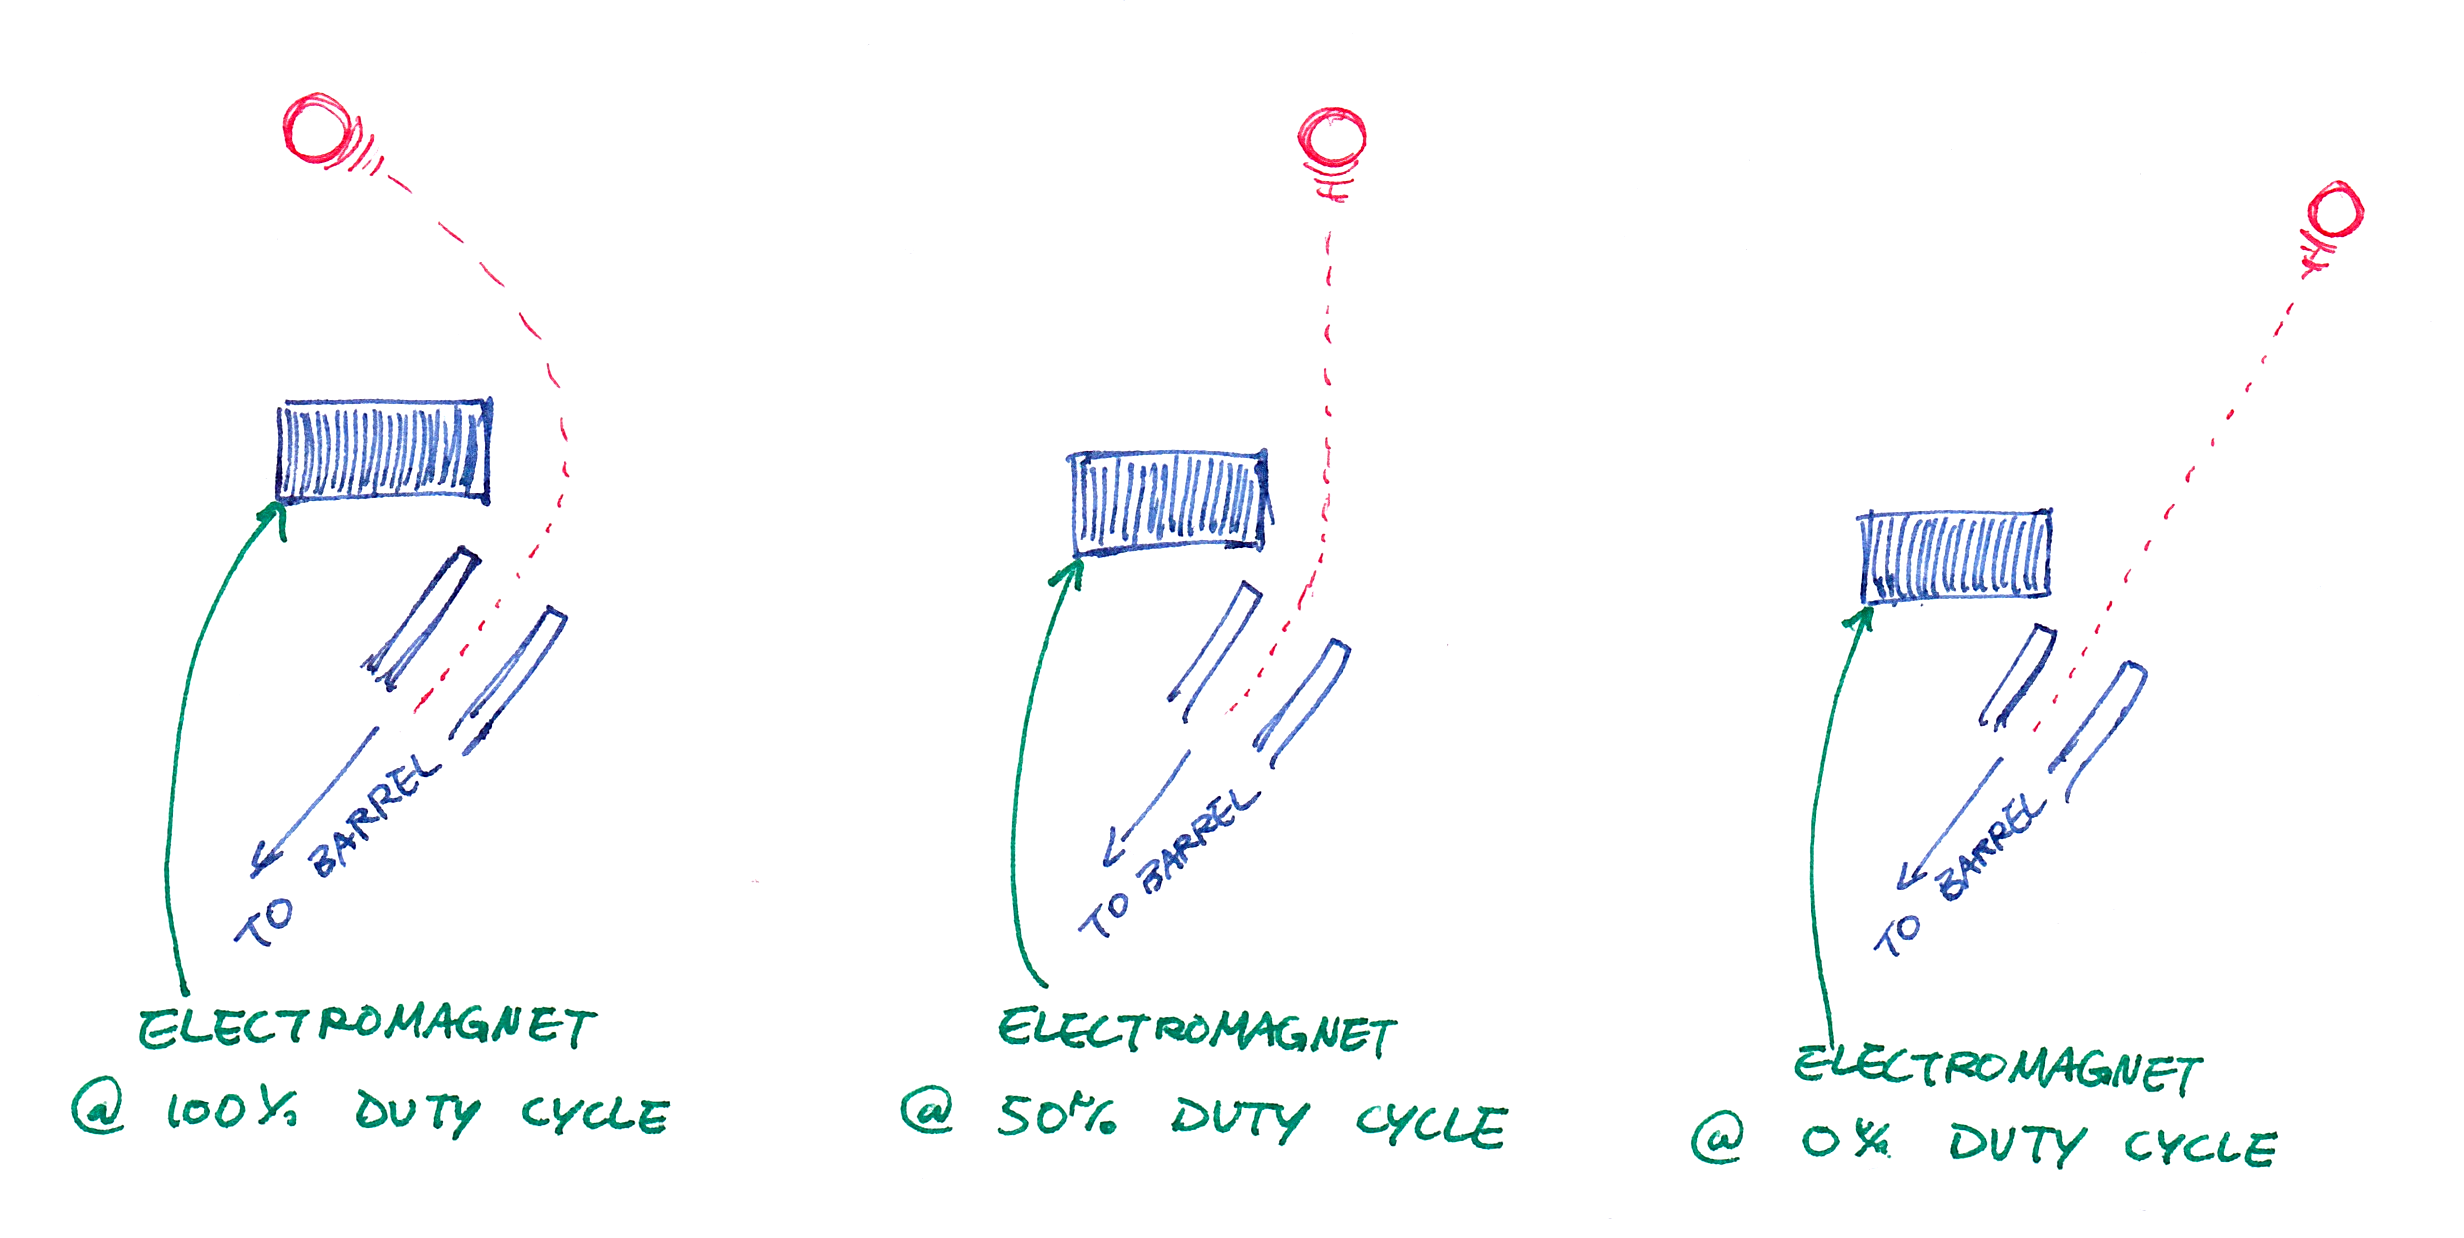 TO BARREL
ELECTROMAGNET
@ 100% DUTY CYCLE
TO BARREL
ELECTROMAGNET
@ 50% DUTY CYCLE
TO BARREL
ELECTROMAGNET
@ 0% DUTY CYCLE